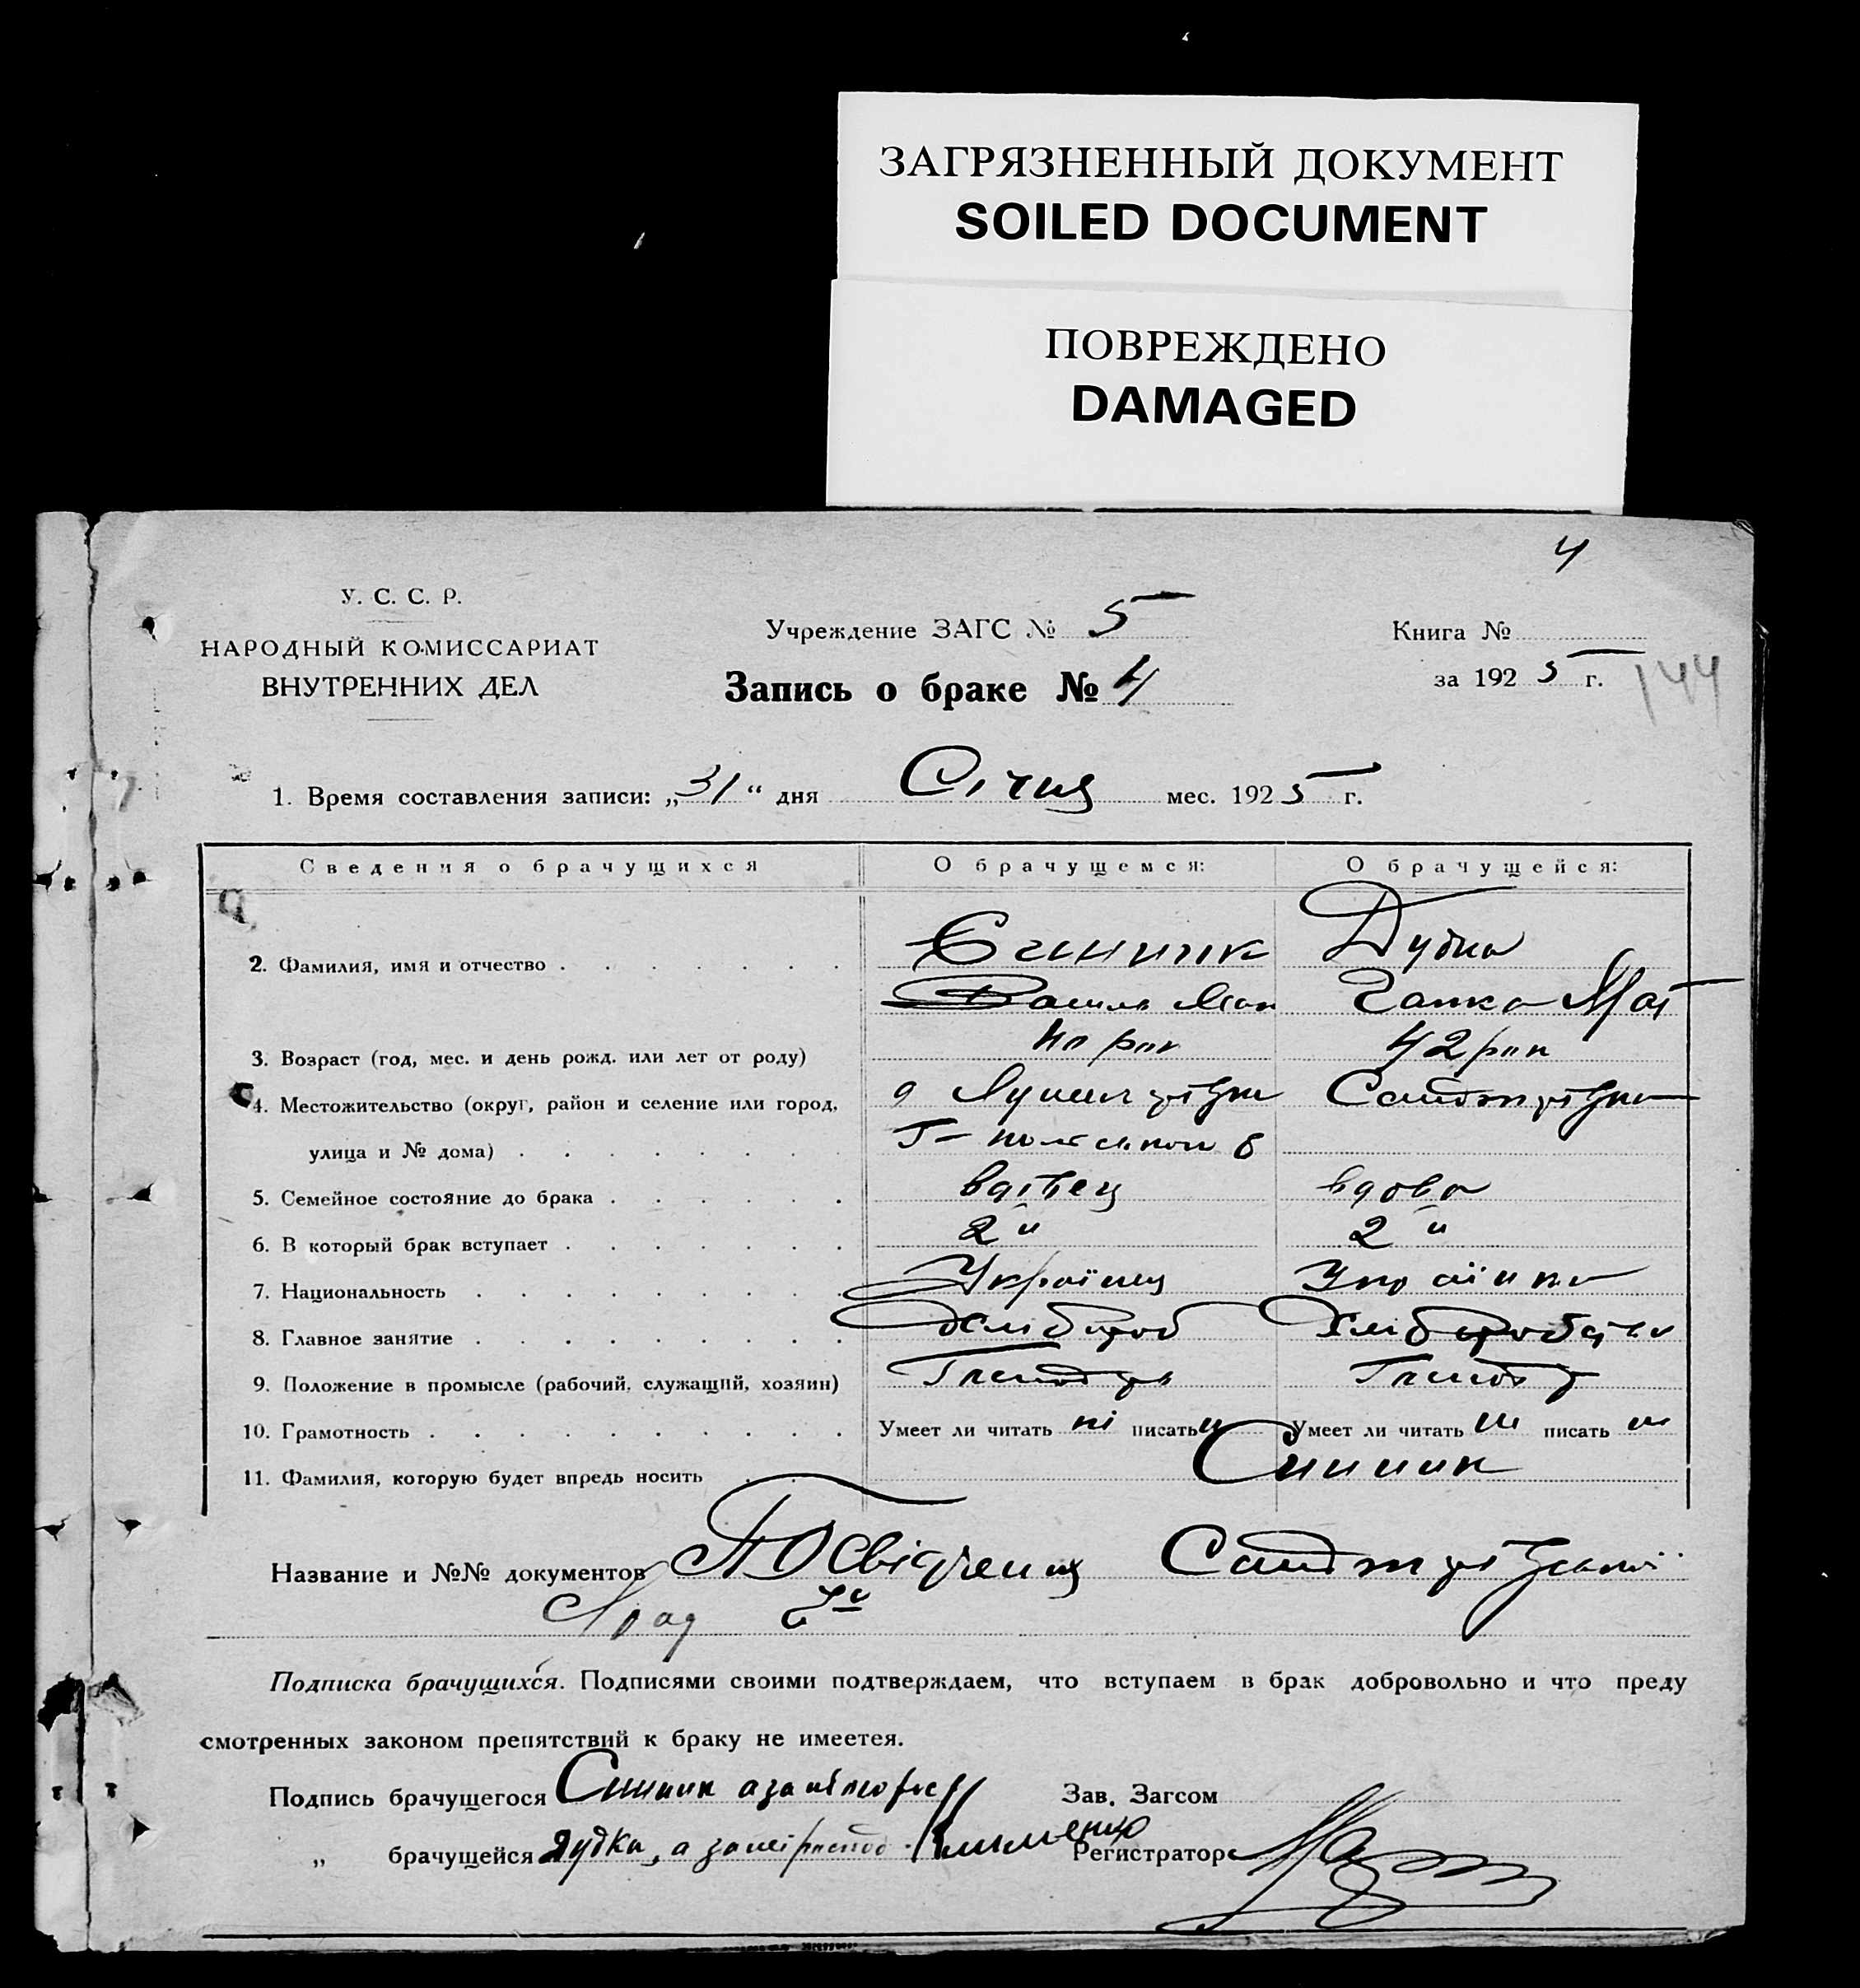 ЗАГРЯЗНЕННЫЙ ДОКУМЕНТ
SOILED DOCUMENT
ПОВРЕЖДЕНО
DAMAGED
4
У. С. С. Р.
НАРОДНЫЙ КОМИССАРИАТ
ВНУТРЕННИХ ДЕЛ
Учреждение ЗАГС № 5
Запись о браке № 4
Книга №
за 1925 г.
144
1. Время составления записи: „31“ дня Січня мес. 1925 г.
Сведения о брачущихся О брачущемся: О брачущейся:
2. Фамилия, имя и отчество Дудка
Ганка
3. Возраст (год, мес. и день рожд. или лет от роду) 42 рок
4. Местожительство (округ, район и селение или город,
улица и № дома)
5. Семейное состояние до брака вдівець вдова
6. В который брак вступает 2й 2й
7. Национальность Українець Українка
8. Главное занятие Хлібороб
9. Положение в промысле (рабочий, служащий, хозяин)
10. Грамотность Умеет ли читать ні писать Умеет ли читать ні писать ні
11. Фамилия, которую будет впредь носить
Название и №№ документов Посвідчення
Подписка брачущихся. Подписями своими подтверждаем, что вступаем в брак добровольно и что преду
смотренных законом препятствий к браку не имеетея.
Подпись брачущегося
Зав. Загсом
„ брачущейся Дудка, а
Регистратор